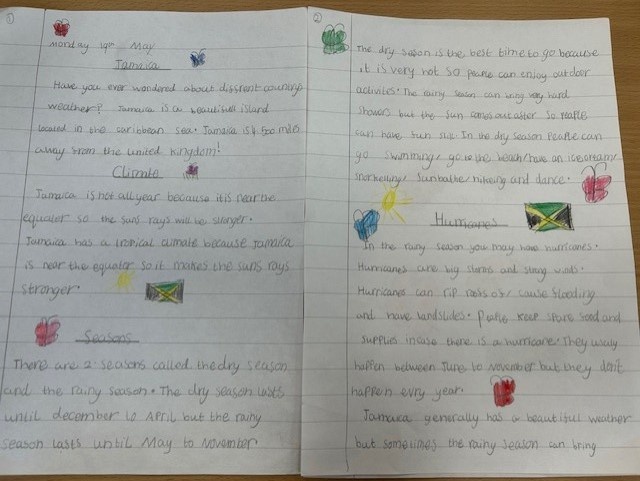 1
Monday 19th May
Jamaica
Have you ever wondered about different countrys
weather? Jamaica is a beautifull island
located in the caribbean sea. Jamaica is 4,600 miles
away from the united kingdom!
Climate
Jamaica is hot all year because it is near the
equator so the suns rays will be stronger.
Jamaica has a tropical climate because Jamaica
is near the equator so it makes the suns rays
stronger.
Seasons
There are 2 seasons called the dry season
and the rainy season. The dry season lasts
until december to April but the rainy
season lasts until May to November
2
The dry season is the best time to go because
it is very hot so people can enjoy outdoor
activites. The rainy season can bring very hard
showers but the sun comes out after so people
can have fun still. In the dry season People can
go swimming, go to the beach, have an icecream,
snorkelling, sunbathe, hikeing and dance.
Hurricanes
In the rainy season you may have hurricanes.
Hurricanes are big storms and strong winds.
Hurricanes can rip roofs of, cause flooding
and have landslides. People keep spare food and
supplies incase there is a hurricane. They usualy
happen between June to November but they don't
happen evry year.
Jamaica generally has a beautiful weather
but sometimes the rainy season can bring